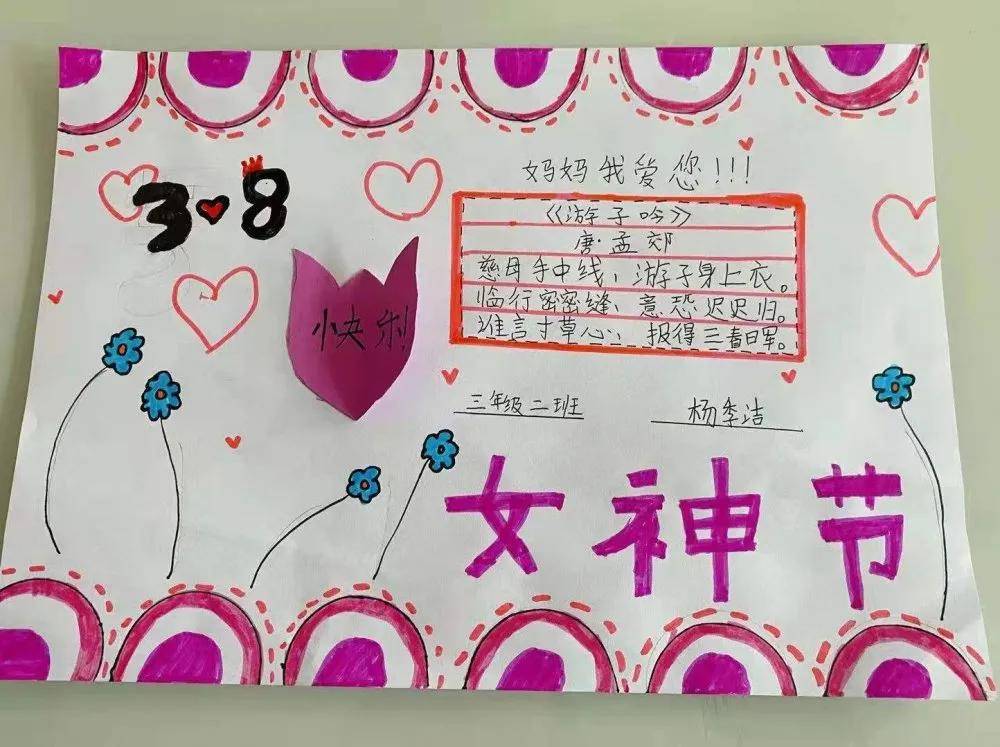 3 8
快乐!
妈妈我爱您!!!
《游子吟》
唐·孟郊
慈母手中线，游子身上衣。
临行密密缝，意恐迟迟归。
谁言寸草心，报得三春日军。
三年级二班 杨季洁
女神节